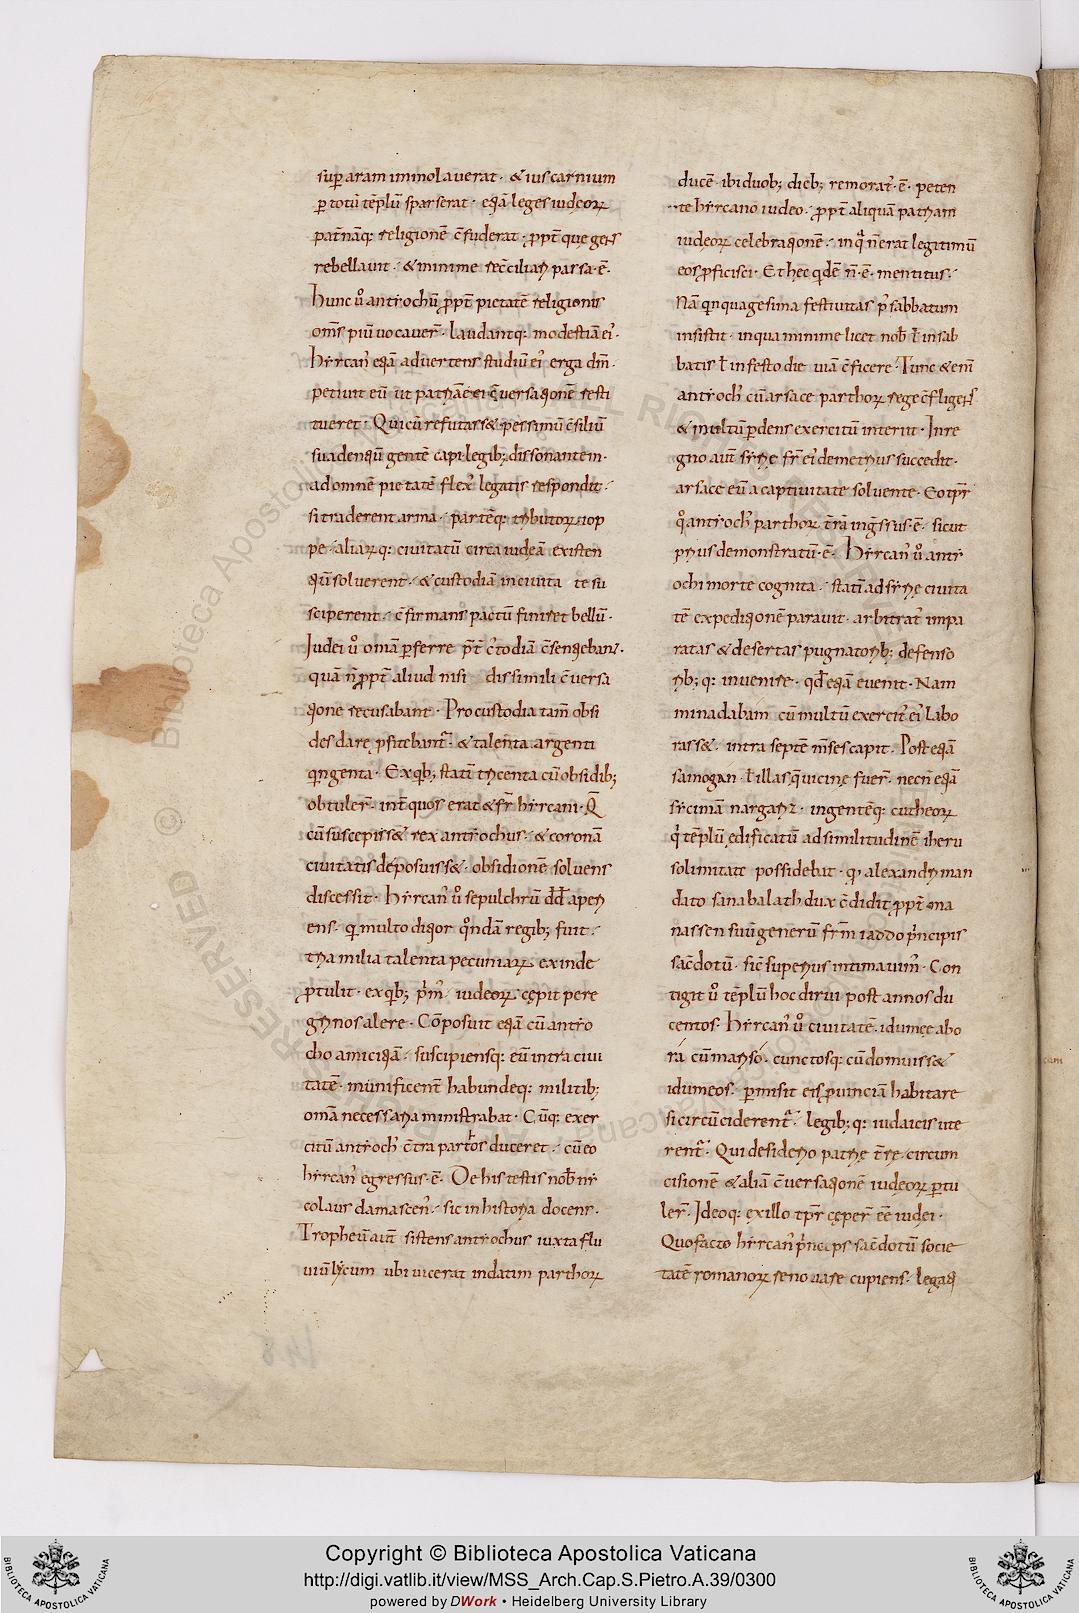 sup aram immolauerat · & ius carnium
ꝑ totū tēplū sparserat · etiā leges iudeoꝝ
patnāq: religionē c̄fuderat · ꝓpt̄ que gens
rebellauit · & minime rec̄ciliari passa · ē ·
Hunc u̓ antiochū ꝓpt̄ pietatē religionis
om̄s piū uocauer̄ · laudantq: modestiā ei᾽ ·
Hircan᾽ etiā aduertens studiū ei᾽ erga dm̄ ·
petiuit eū ut patriā ei c̄uersationē resti
tueret · Qui cū refutass& pessimū c̄siliū
suadentiū gentē capi · legib; dissonantem ·
ad omnē pietatē flex᾽ legatis respondit ·
si traderent arma · partēq: tributoꝝ iop
pe · aliarq: ciuitatū circa iudeā existen
tiū soluerent · & custodiā in ciuita te su
sciperent · c̄firmans pactū finiret bellū ·
Iudei u̓ omā ꝑferre pt̄ c᾽todiā c̄sentiebant ·
quā n̄ ꝓpt̄ aliud nisi dissimili c̄uersa
tione recusabant · Pro custodia tam̄ obsi
des dare ꝓfitebant᾽ · & talenta argenti
qingenta · Ex qb; statī tricenta cū obsidib;
obtuler̄ · int̄ quos erat & fr̄ hircani · Q̄
cū suscepiss& rex antiochus · & coronā
ciuitatis deposuiss& · obsidionē soluens
discessit · Hircan᾽ u̓ sepulchrū dd̄ aperi
ens · qi multo ditior qndā regib; fuit ·
tria milia talenta pecuniarꝝ exinde
ꝓtulit · ex qb; pm᾽ iudeoꝝ cępit pere
grinos alere · Cōposuit etiā cū antio
cho amicitiā · suscipiensq: eū intra ciui
tatē · munificent̄ habundeq: militib;
omā necessaria ministrabat · Cūq: exer
citū antioch᾽ c̄tra partos duceret · cū eo
hircan᾽ egressus · ē · De his testis nob̄ ni
colaus damascen᾽ · sic in historia docens ·
Tropheū aut̄ sistens antiochus iuxta flu
uiū lycum ubi uicerat indatim parthoꝝ
ducē · ibi duob; dieb; remorat᾽ · ē · peten
te hircano iudeo · ꝓpt̄ aliquā patriam
iudeoꝝ celebrationē · in q̄ n̄ erat legitimū
eos ꝓficisci · Et hec qdē n̄ · ē · mentitus ·
Nā qinquagesima festiuitas p᾽ sabbatum
insistit · in qua minime licet nob̄ ł in sab
batis ł in festo die uiā c̄ficere · Tunc & eni
antioch᾽ cū arsace parthoꝝ rege c̄fligens
& multū ꝑdens exercitū interiit · In re
gno aut̄ sirię fr̄ ei᾽ demetrius succedit ·
arsace eū a captiuitate soluente · Eo tpr̄
qo antioch᾽ parthoꝝ t̄rā inḡssus · ē · sicut
prius demonstratū · ē · Hircan᾽ u̓ anti
ochi morte cognita · statī ad sirię ciuita
tē expeditionē parauit · arbitrat᾽ impa
ratas & desertas pugnatorib; defenso
rib; q: inuenire · qd̄ etiā euenit · Nam
minadabam cū multū exercit᾽ ei᾽ labo
rass& · intra septē m̄ses capit · Post etiā
samogan · ł illas q̄ uicinę fuer̄ · necn̄ etiā
sicimam nargariz · ingentēq: cutheoꝝ
q̓ tēplū edificatū ad similitudinē iheru
solimitate possidebat · qi alexandri man
dato sanabalath dux c̄didit ꝓpt̄ ma
nassen suū generū frm̄ iaddo p᾽ncipis
sac̄dotū · sic̄ superius intimauim᾽ · Con
tigit u̓ tēplū hoc dirui post annos du
centos · Hircan᾽ u̓ ciuitatē idumęe abo
rā cū marisó · cunctosq: cū domuiss&
idumeos · ꝑmisit eis ꝓuinciā habitare
si circūciderent᾽ · legib; q: iudaicis ute
rent᾽ · Qui desiderio patrię t̄rę · circum
cisionē & aliā c̄uersationē iudeoꝝ ꝑtu
ler̄ · Ideoq: ex illo tpr̄ cęper̄ ēē iudei ·
Quo facto hircan᾽ p᾽nceps sac̄dotū socie
tatē romanoꝝ renouare cupiens · legati
148
Copyright © Biblioteca Apostolica Vaticana
http://digi.vatlib.it/view/MSS_Arch.Cap.S.Pietro.A.39/0300
powered by DWork • Heidelberg University Library